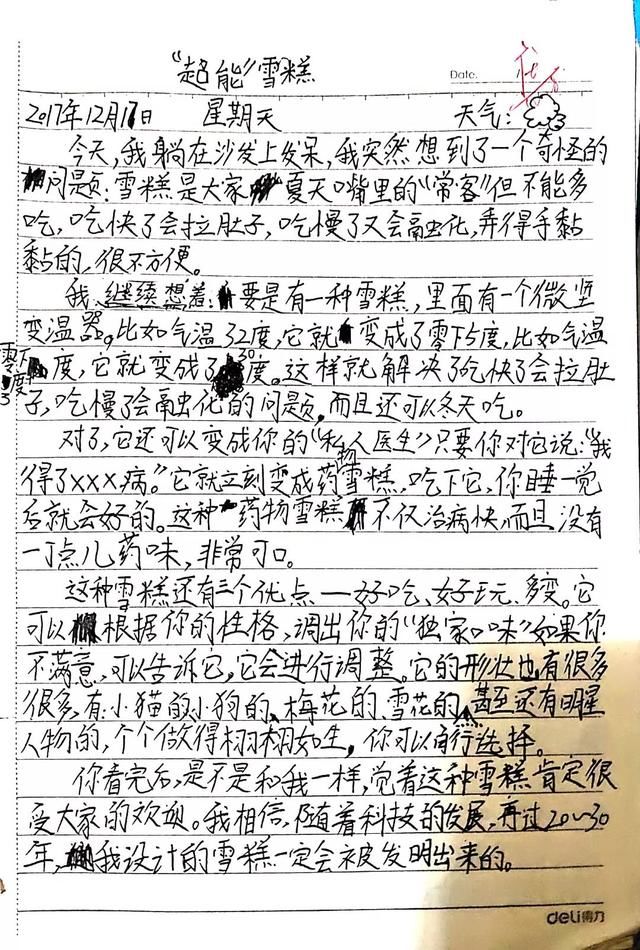 "超能"雪糕
Date.
2017年12月17日 星期天 天气：
今天，我躺在沙发上发呆，我突然想到了一个奇怪的
问题：雪糕是大家夏天嘴里的"常客"但不能多
吃，吃快了会拉肚子，吃慢了又会融化，弄得手黏
黏的，很不方便。
我继续想着：要是有一种雪糕，里面有一个微型
变温器。比如气温32度，它就变成了零下5度，比如气温
零下3度，它就变成了30度。这样就解决了吃快了会拉肚
子，吃慢了会融化的问题，而且还可以冬天吃。
对了，它还可以变成你的"私人医生"只要你对它说："我
得了xxx病。"它就立刻变成药物雪糕，吃下它，你睡一觉
后就会好的。这种药物雪糕不仅治病快，而且没有
一丁点儿药味，非常可口。
这种雪糕还有三个优点—好吃、好玩、多变。它
可以根据你的性格，调出你的"独家口味"如果你
不满意，可以告诉它，它会进行调整。它的形状也有很多
很多，有小猫的、小狗的、梅花的、雪花的、甚至还有明星
人物的，个个做得栩栩如生，你可以自行选择。
你看完后，是不是和我一样，觉着这种雪糕肯定很
受大家的欢迎。我相信，随着科技的发展，再过20~30
年，我设计的雪糕一定会被发明出来的。
deli得力